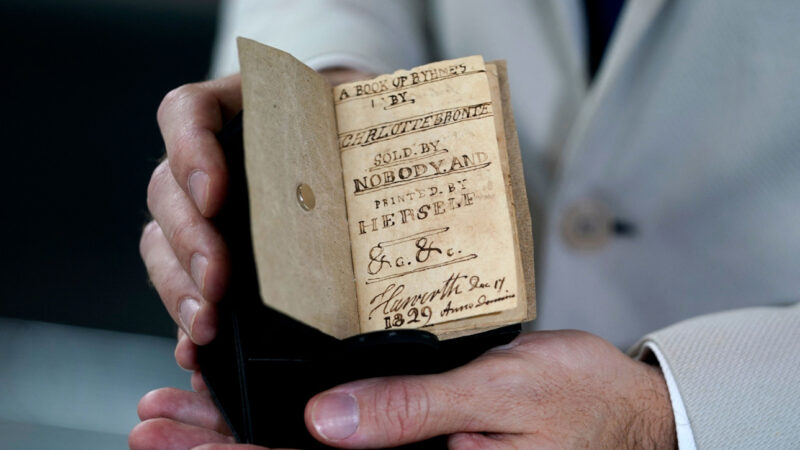 A BOOK OF RYHMES
BY
CHARLOTTE BRONTE
SOLD. BY
NOBODY. AND
PRINTED. BY
HERSELF
&c. &c.
Haworth Dec 17.
1829 Anno domini